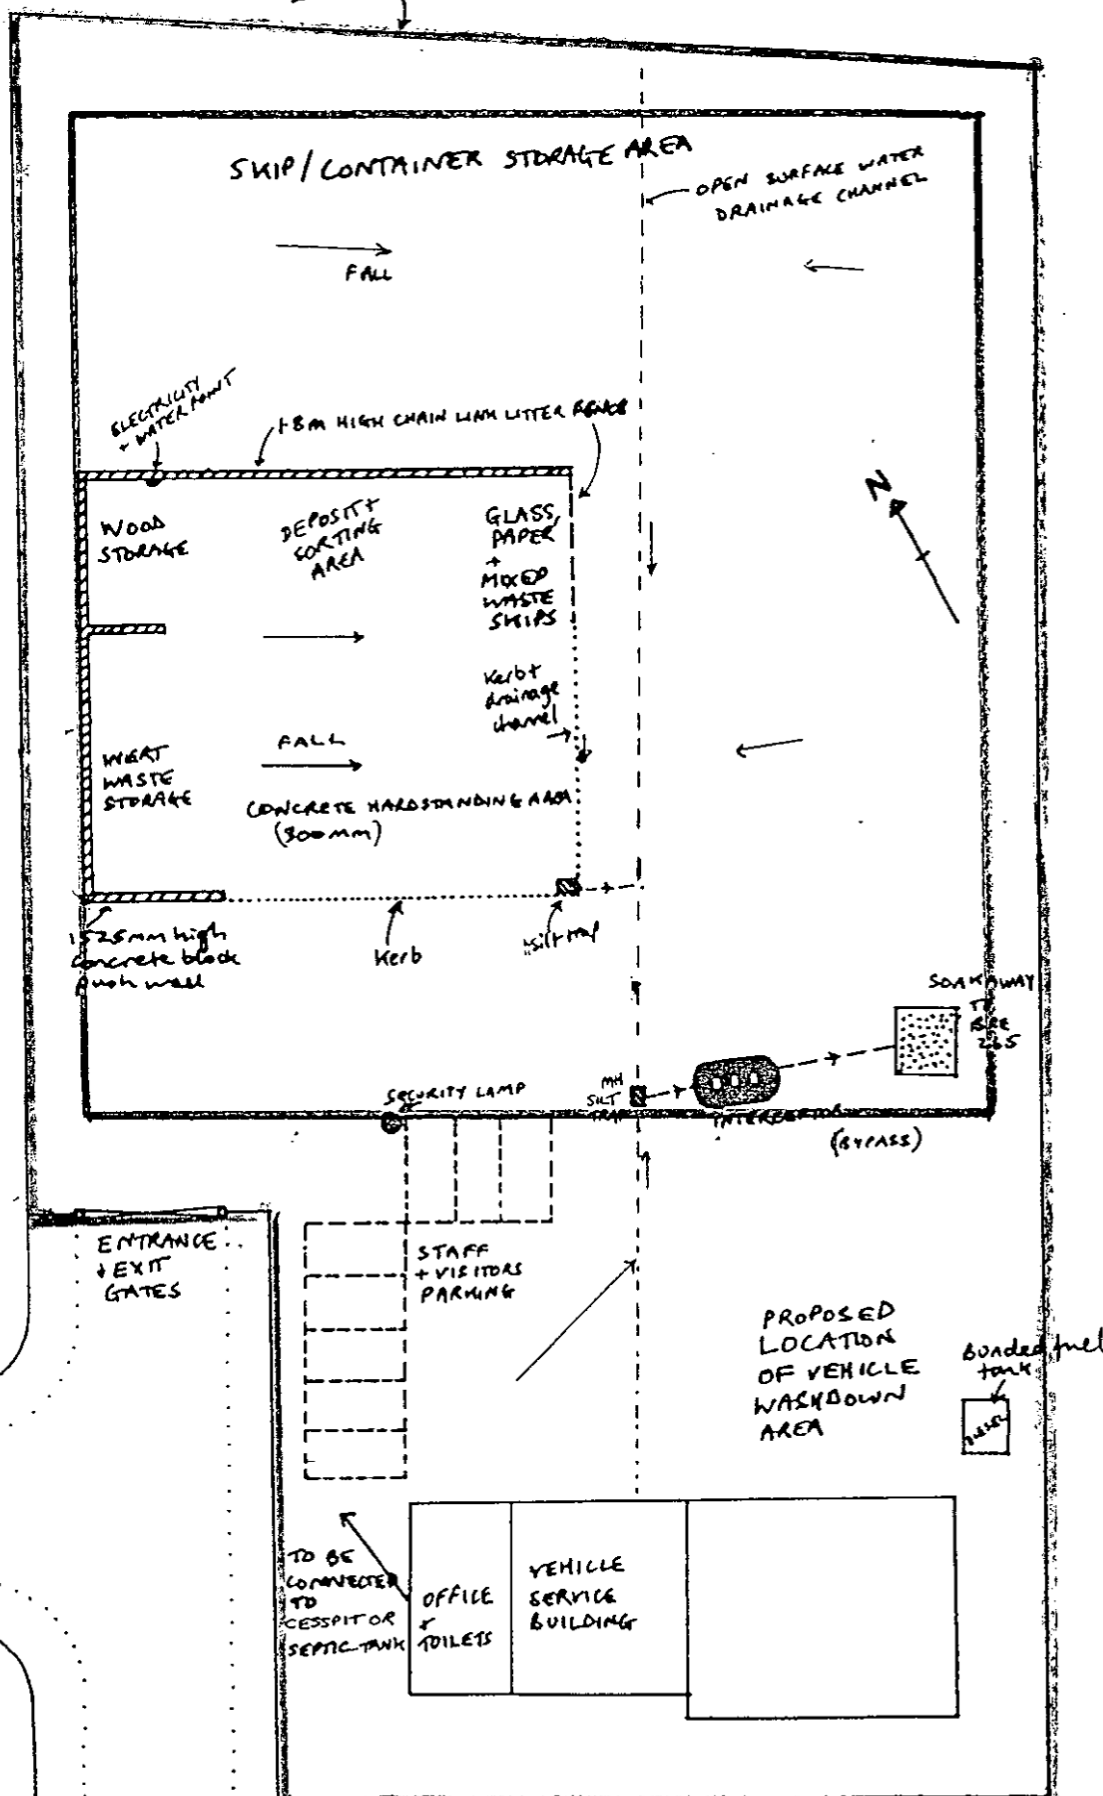 SKIP/CONTAINER STORAGE AREA
OPEN SURFACE WATER
DRAINAGE CHANNEL
FALL
ELECTRICITY
+ WATER POINT
1.8M HIGH CHAIN LINK LITTER FENCE
N
WOOD
STORAGE
DEPOSIT +
SORTING
AREA
GLASS,
PAPER
+
MIXED
WASTE
SKIPS
Kerb +
drainage
channel
FALL
INERT
WASTE
STORAGE
CONCRETE HARDSTANDING AREA
(300mm)
1525mm high
concrete block
push wall
Kerb
silt trap
SOAKAWAY
TO
BRE
265
MH
SILT
TRAP
INTERCEPTOR
(BYPASS)
SECURITY LAMP
ENTRANCE
+ EXIT
GATES
STAFF
+ VISITORS
PARKING
PROPOSED
LOCATION
OF VEHICLE
WASHDOWN
AREA
Bunded fuel
tank
DIESEL
TO BE
CONNECTED
TO
CESSPIT OR
SEPTIC TANK
OFFICE
+
TOILETS
VEHICLE
SERVICE
BUILDING